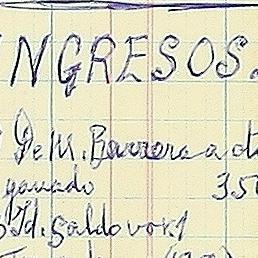 INGRESOS.
De M. Barrera a
ganado 350
Id. Saldo vor1